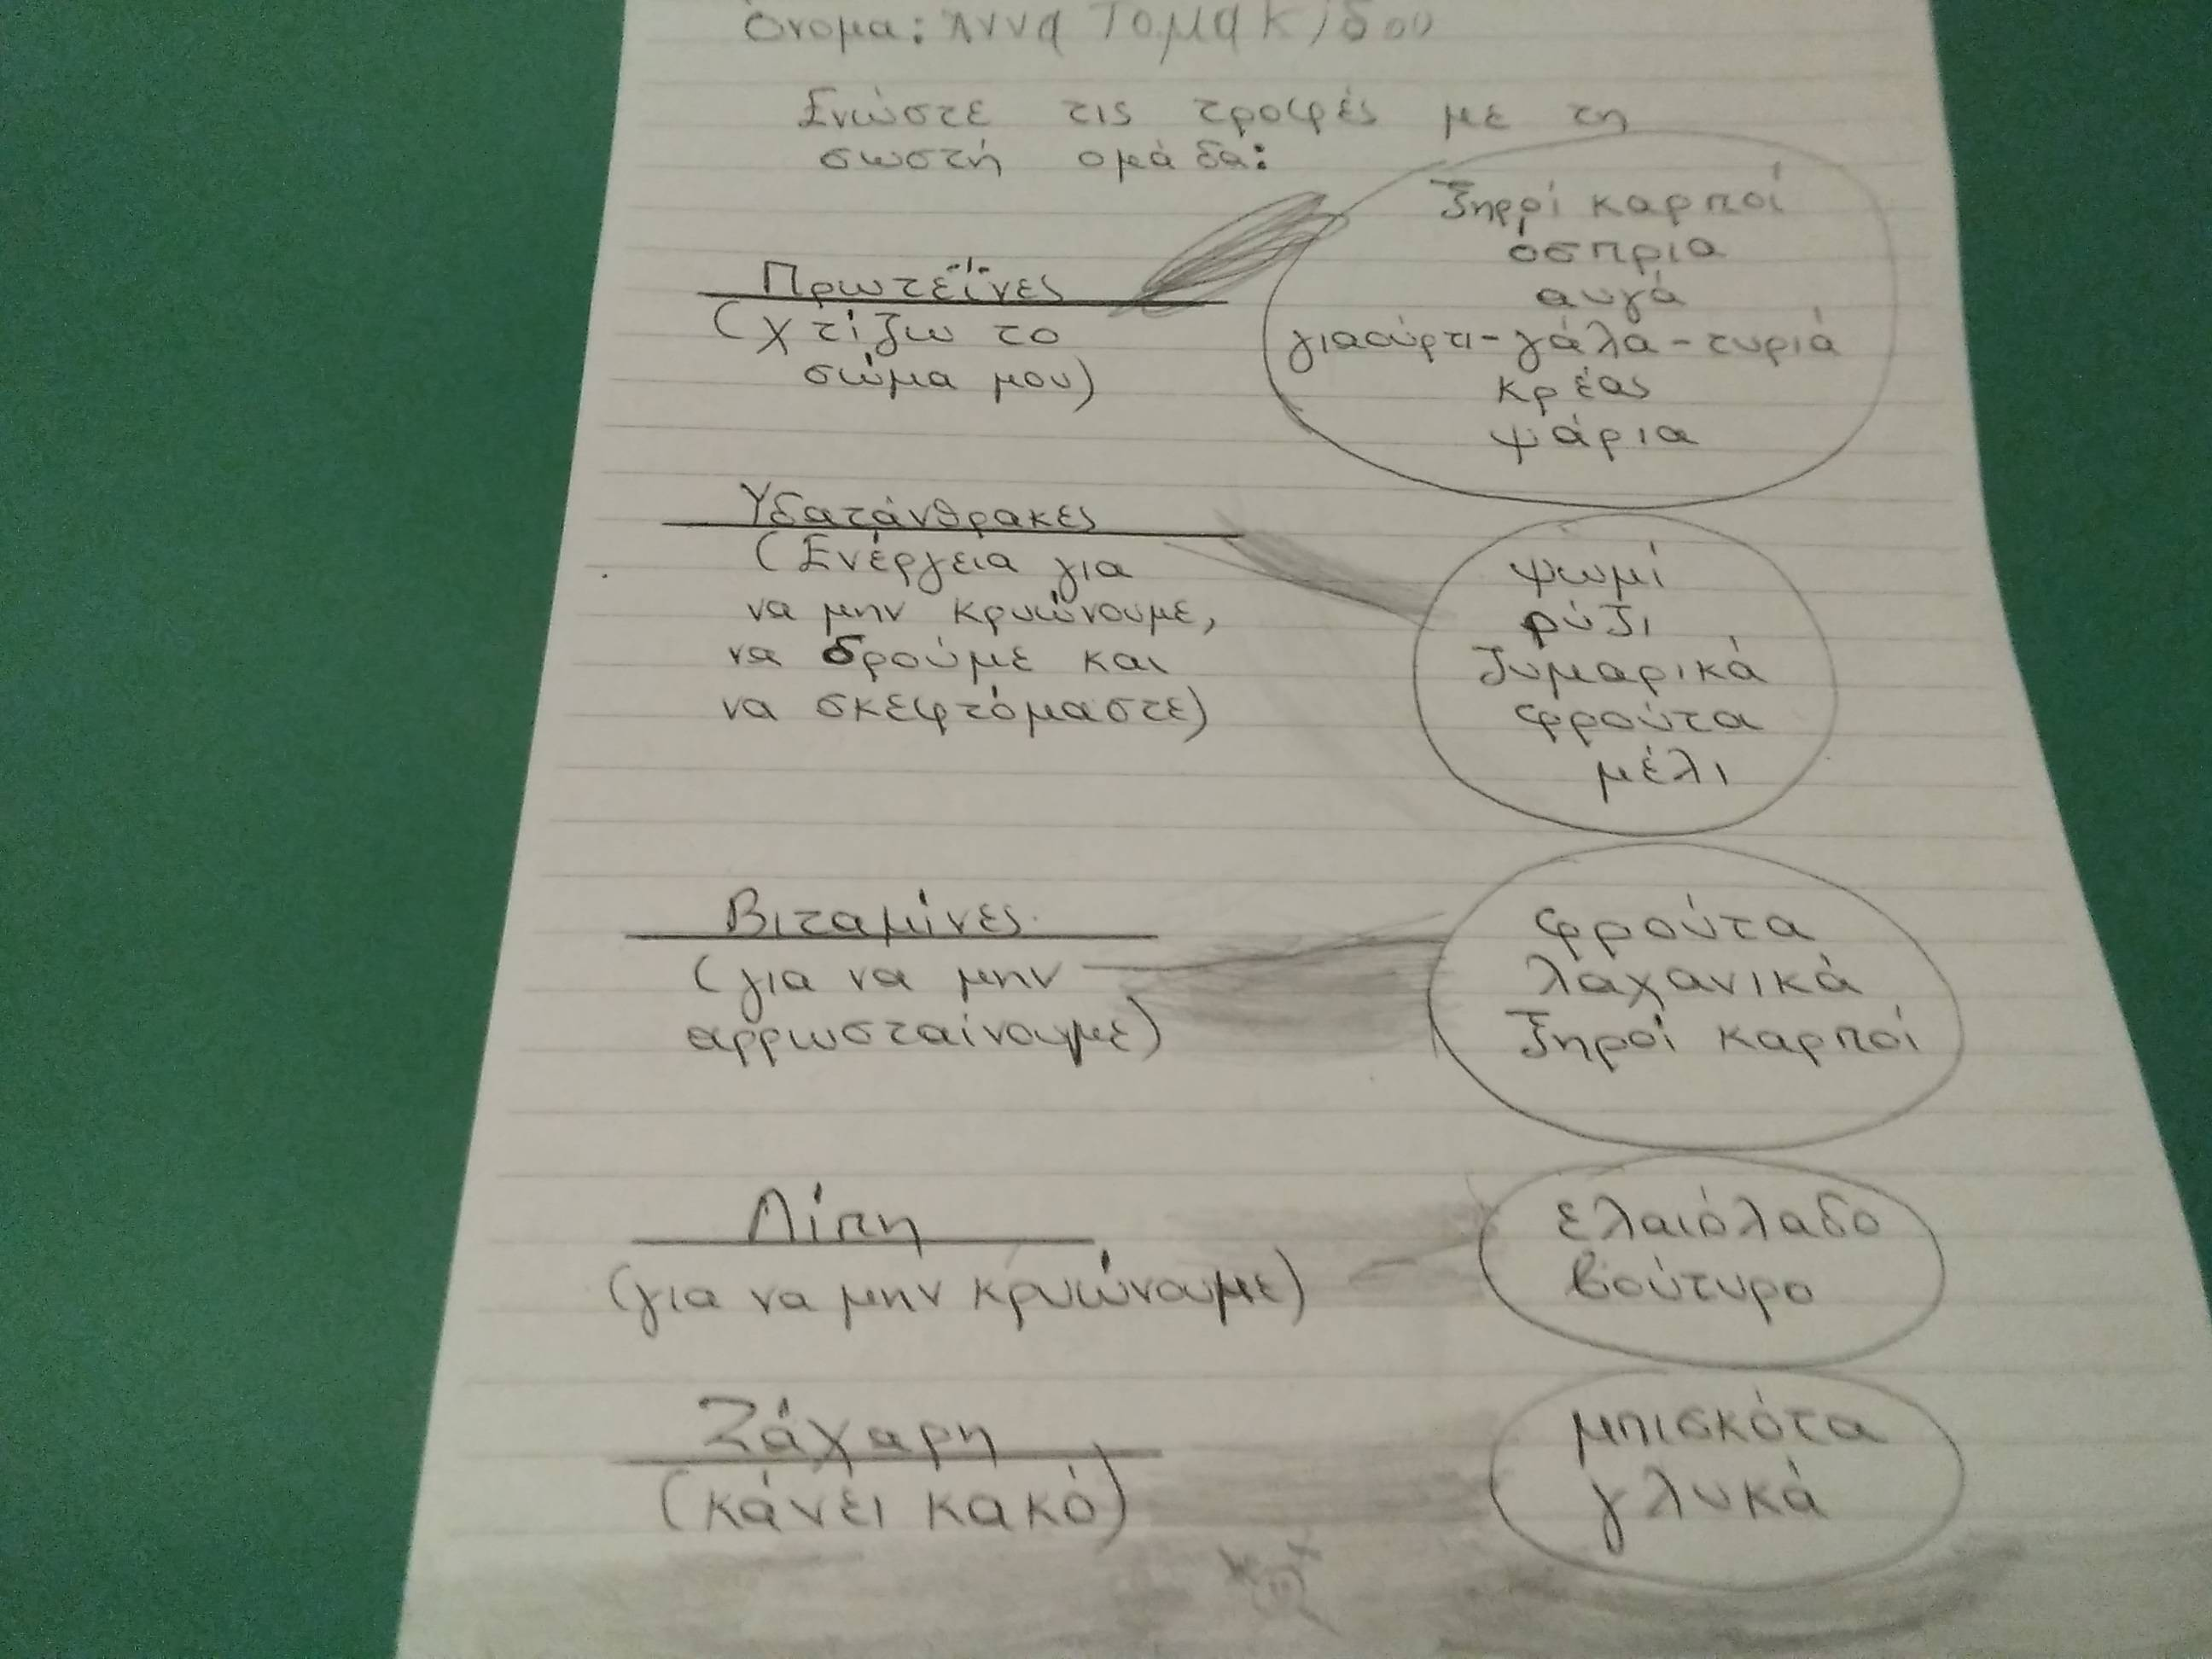 Όνομα: Άννα Τομακίδου
Ενώστε τις τροφές με τη
σωστή ομάδα:
Πρωτεΐνες
(χτίζω το
σώμα μου)
Ξηροί καρποί
όσπρια
αυγά
γιαούρτι-γάλα-τυριά
κρέας
ψάρια
Υδατάνθρακες
(Ενέργεια για
να μην κρυώνουμε,
να δρούμε και
να σκεφτόμαστε)
ψωμί
ρύζι
ζυμαρικά
φρούτα
μέλι
Βιταμίνες
(για να μην
αρρωσταίνουμε)
φρούτα
λαχανικά
ξηροί καρποί
Λίπη
(για να μην κρυώνουμε)
ελαιόλαδο
βούτυρο
Ζάχαρη
(κάνει κακό)
μπισκότα
γλυκά